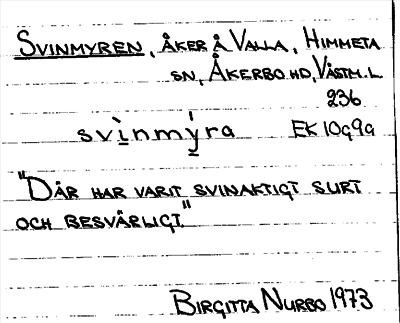 SVINMYREN, ÅKER Å VALLA, HIMMETA
SN, ÅKERBO HD, VÄSTM. L.
236
svìnmýra EK 10g9a
"DÄR HAR VARIT SVINAKTIGT SURT
OCH BESVÄRLIGT."
BIRGITTA NURBO 1973